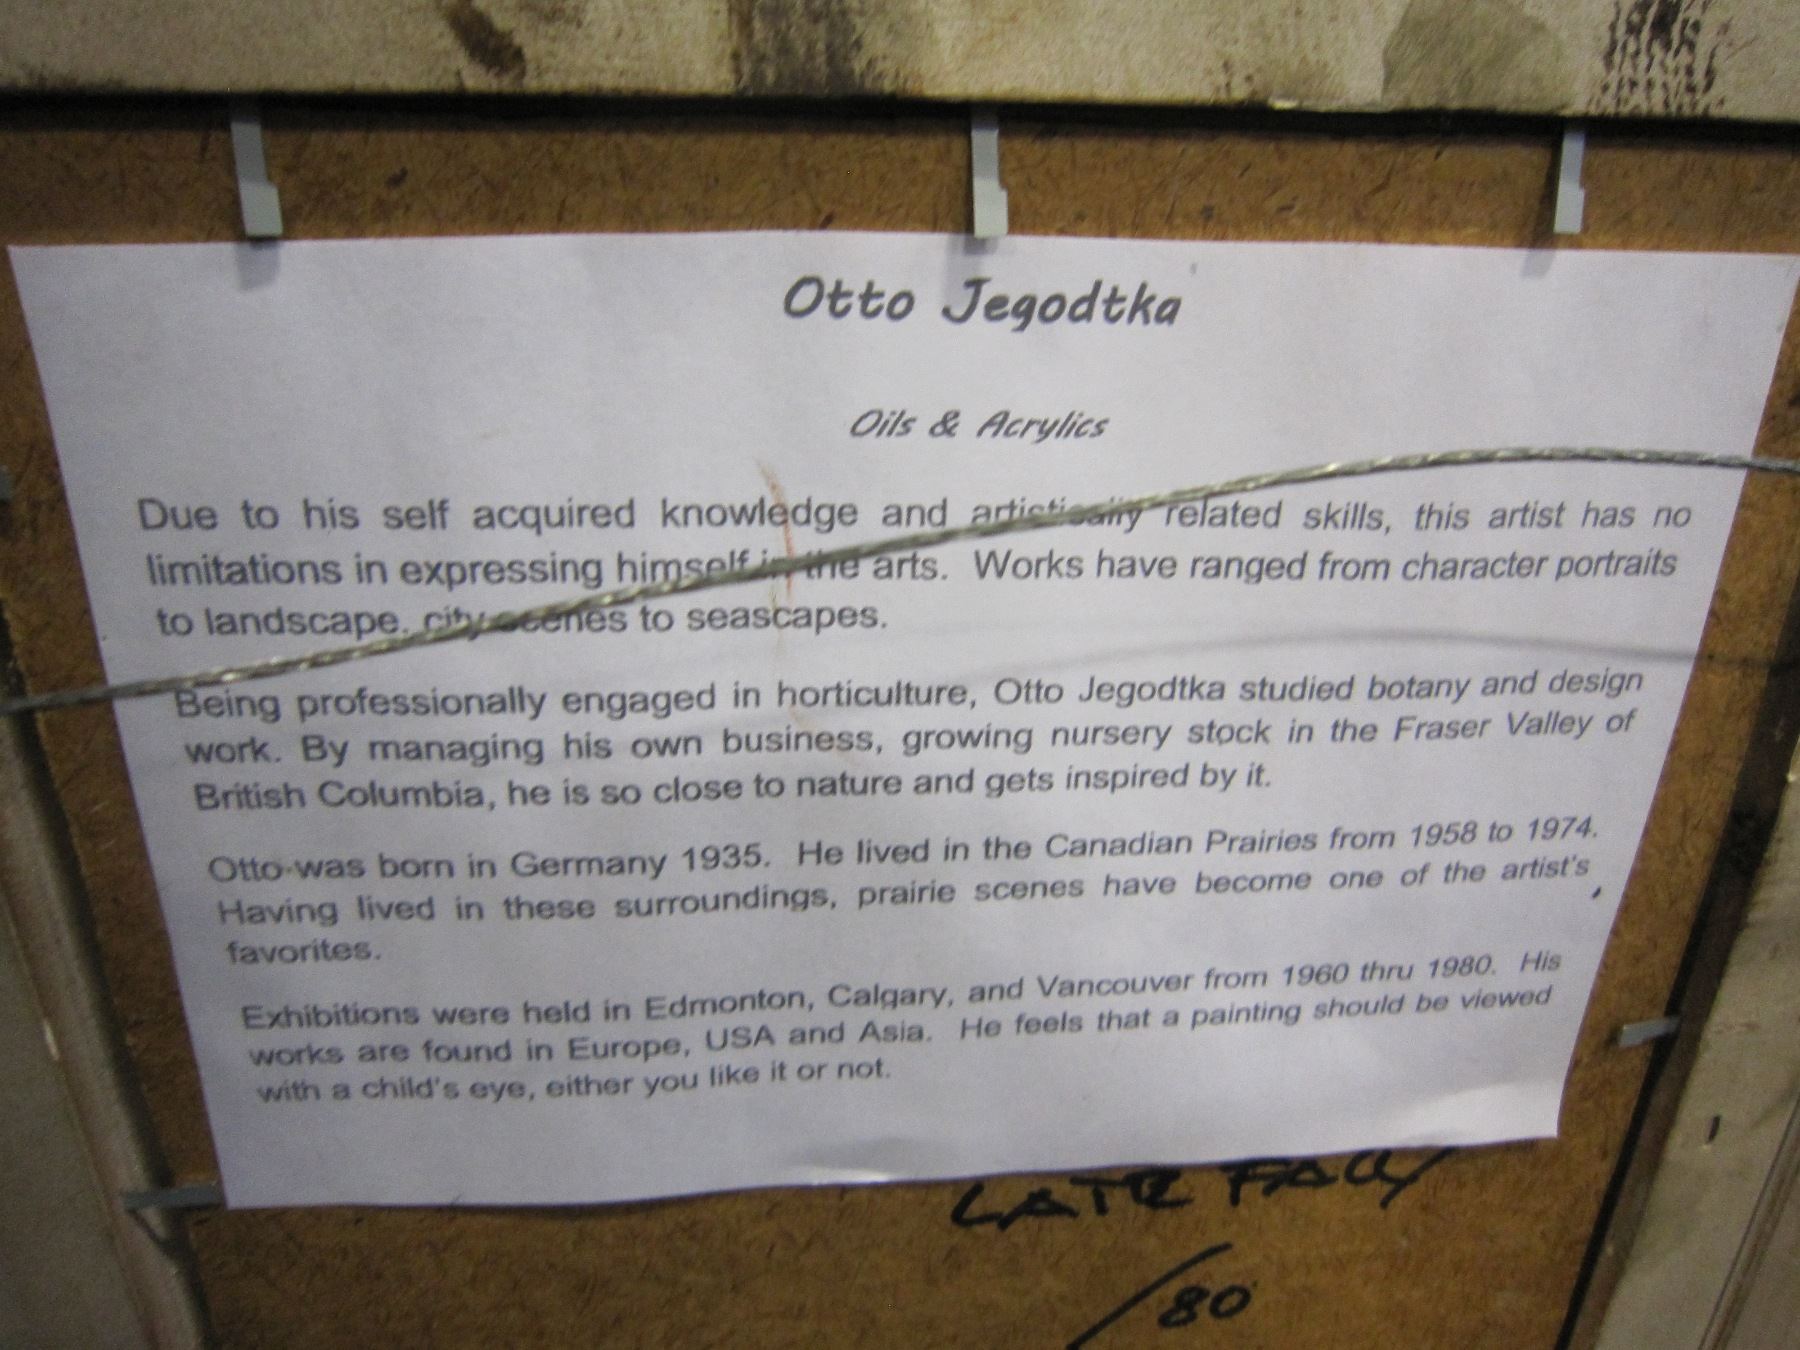 Otto Jegodtka
Oils & Acrylics
Due to his self acquired knowledge and artistically related skills, this artist has no
limitations in expressing himself in the arts. Works have ranged from character portraits
to landscape, city scenes to seascapes.
Being professionally engaged in horticulture, Otto Jegodtka studied botany and design
work. By managing his own business, growing nursery stock in the Fraser Valley of
British Columbia, he is so close to nature and gets inspired by it.
Otto was born in Germany 1935. He lived in the Canadian Prairies from 1958 to 1974.
Having lived in these surroundings, prairie scenes have become one of the artist's
favorites.
Exhibitions were held in Edmonton, Calgary, and Vancouver from 1960 thru 1980. His
works are found in Europe, USA and Asia. He feels that a painting should be viewed
with a child's eye, either you like it or not.
LATE FALL
/80